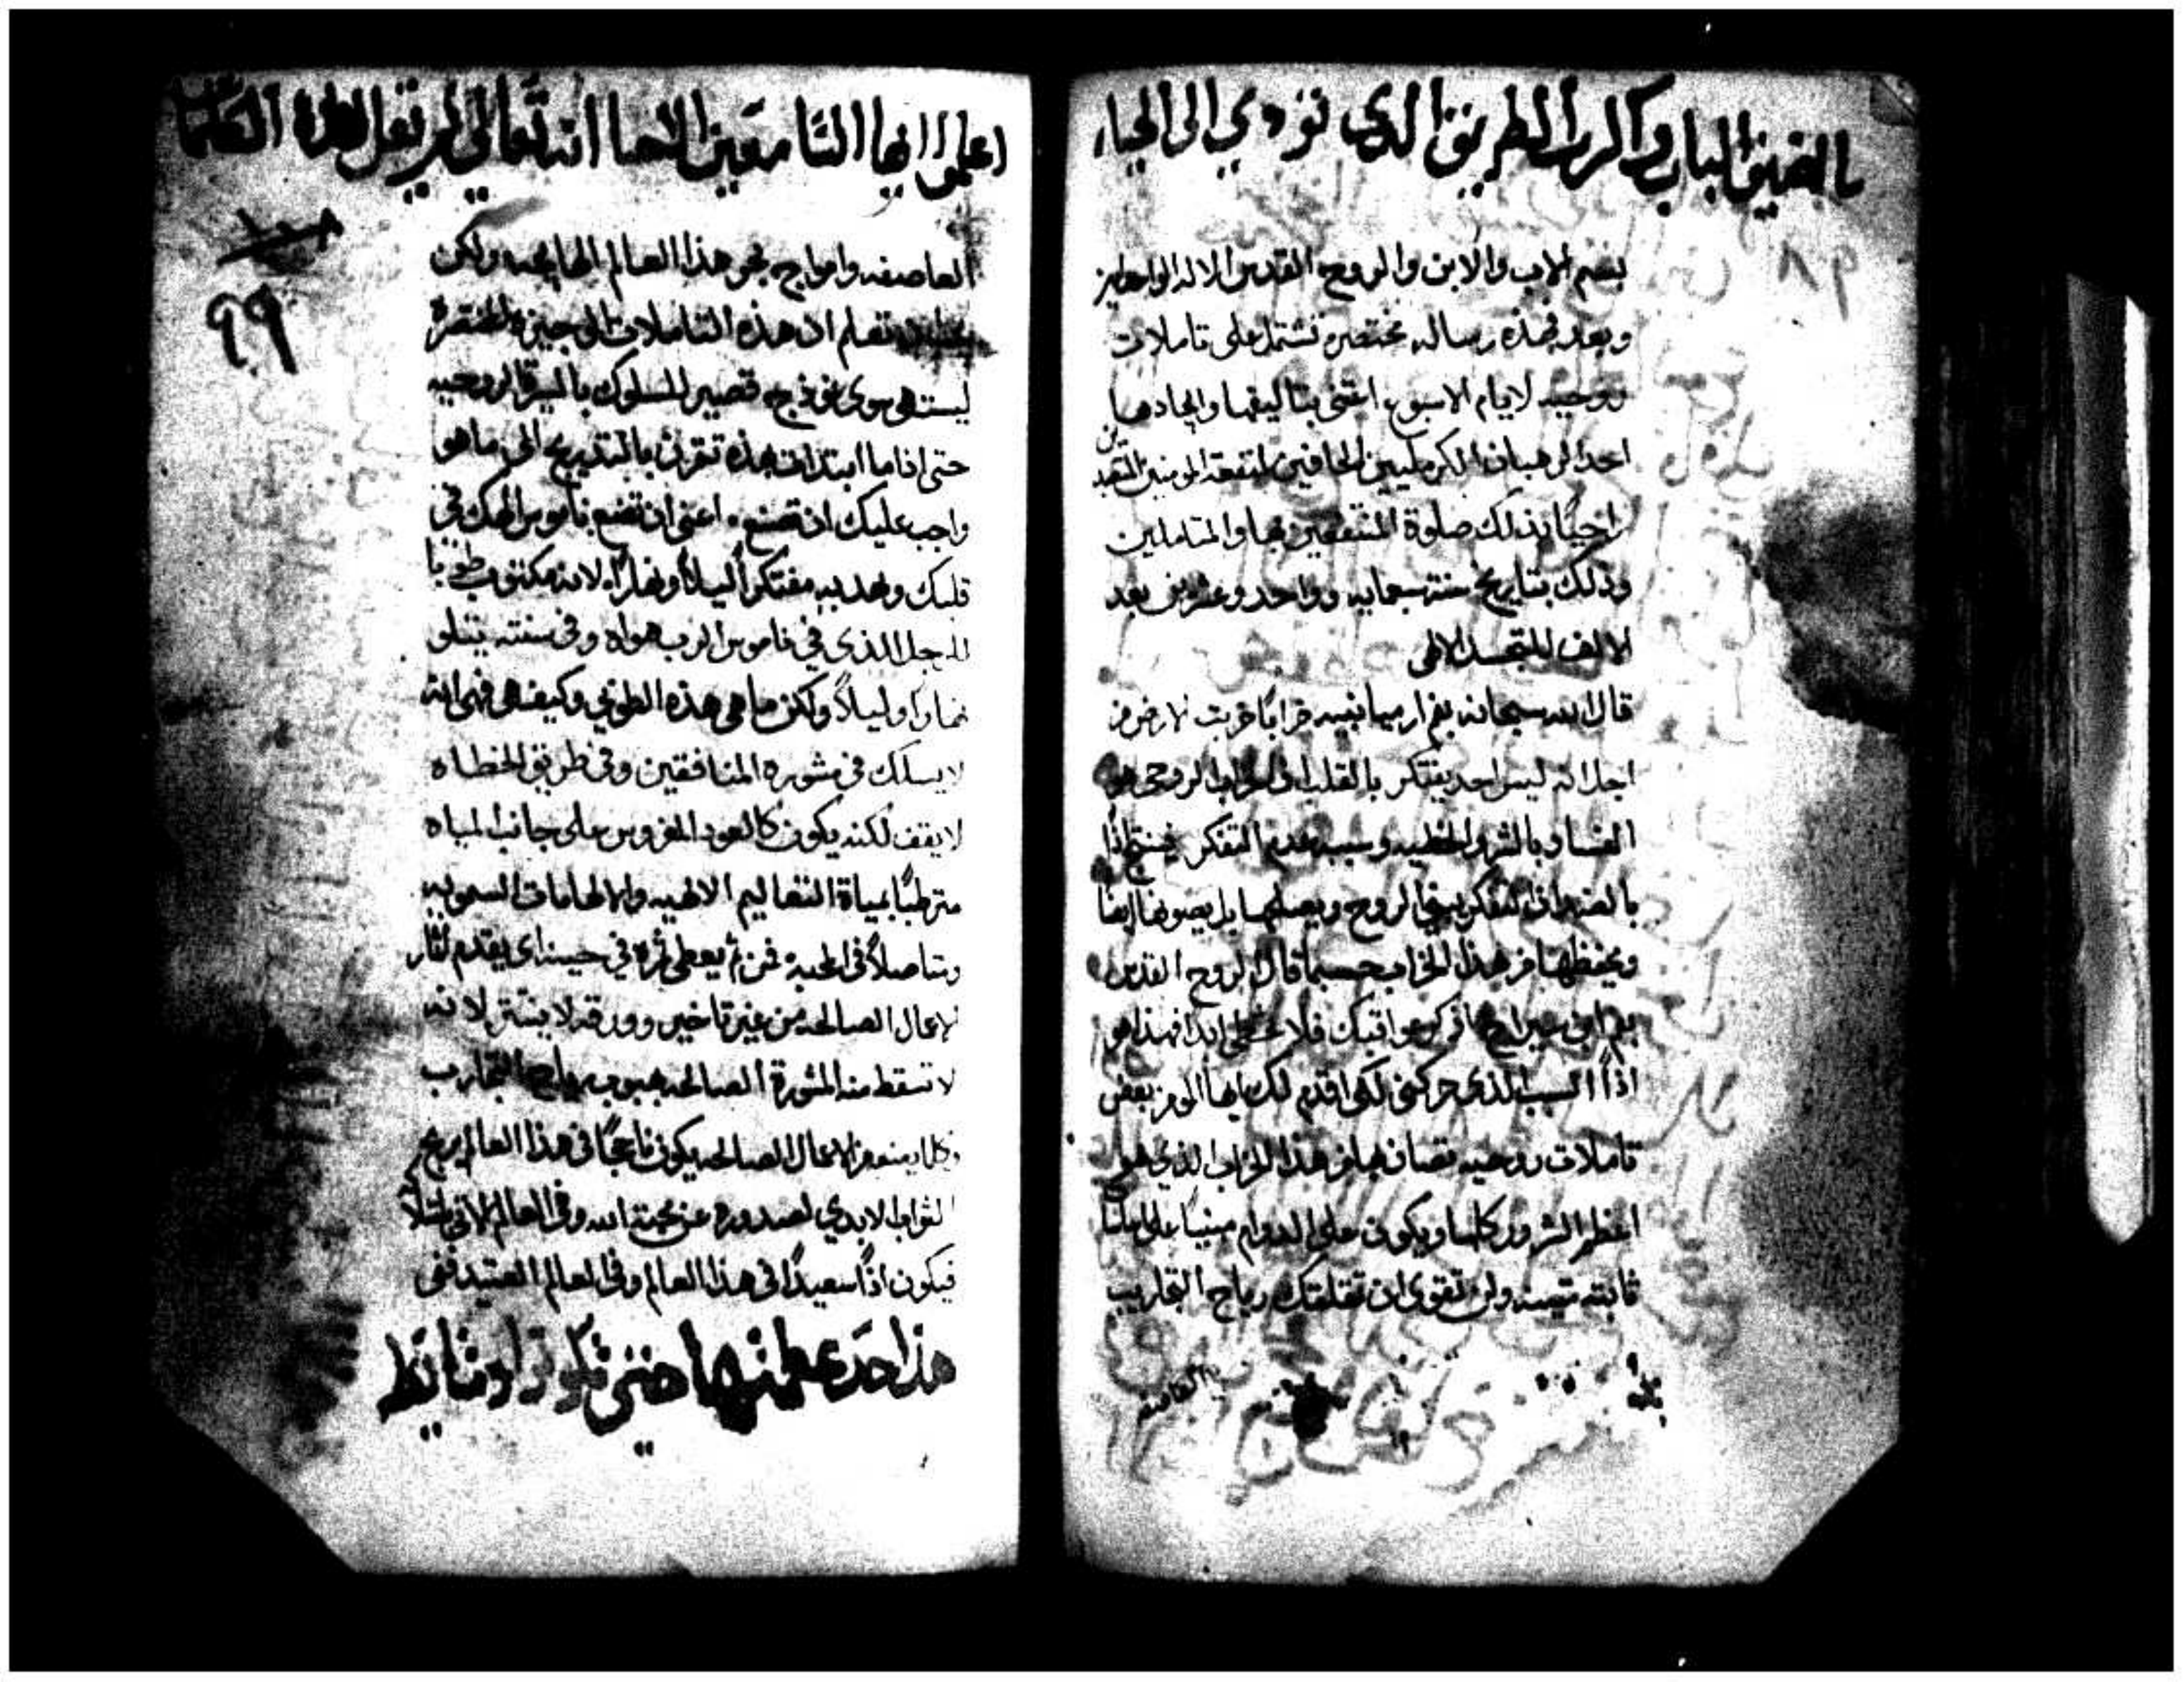 ما اضيق الباب واكرب الطريق الذي تؤدي الى الحياه
٩٨
بسم الاب والابن والروح القدس الاله الواحد امين
وبعد فهذه رساله مختصره تشتمل على تاملات
روحيه لايام الاسبوع اعتنى بتاليفها وايجادها
احد الرهبان الكرمليين الحافيين لمنفعة المومنين المتعبدين
راجيًا بذلك صلوة المنتفعين بها والمتاملين
وذلك بتاريخ سنة سبعمايه وواحد وعشرين بعد
الالف للتجسد الالهى
قال الله سبحانه بفم ارميا نبيه خرابًا خربت الارض من
اجل انه ليس احد يفتكر بالقلب الخراب الروحى هو
الفساد بالشر والخطيه وسببه عدم التفكر فينتج اذًا
بالضد ان التفكر ينجي الروح ويصلحها بل يصونها ايضا
ويحفظها من هذا الخراب حسبما قال الروح القدس
بفم ابن سيراخ اذكر عواقبك فلا تخطى ابدا فهذا هو
اذًا السبب الذى حركنى لكى اقدم لك ايها المومن بعض
تاملات روحيه تصان بها من هذا الخراب الذي هو
اعظم الشرور كلها ويكون على الدوام مبنيًا على
ثابته متينه ولن تقوى ان تقتلعك رياح التجاريب
العاصفه
اعلموا ايها السامعين الاحبا انه تعالى لم يقل لهذه
العاصفه وامواج بحر هذا العالم الهايجه ولكن
تعلم ان هذه التاملات الوجيزه المختصرة
ليست هى سوى نموذج قصير للسلوك بالسيرة الروحيه
حتى اذا ما ابتدات بهذه تقربت بالتدريج الى ما هو
واجب عليك ان تصنع اعنى ان تضع ناموس الهك في
قلبك وتهذ به مفتكرًا ليلاً ونهارًا لانه مكتوب طوبا
للرجل الذي في ناموس الرب هواه وفى سنته يتلو
نهارا وليلاً ولكن ما هي هذه الطوبي وكيف هى فهى انه
لا يسلك فى مشوره المنافقين وفى طريق الخطاه
لا يقف لكنه يكون كالعود المغروس على جانب المياه
مترطبًا بمياة التعاليم الالهيه والالهامات السمويه
ومتاصلاً في المحبة فمن ثم يعطى ثمره في حينه اى يقدم اثمار
الاعمال الصالحه من غير تاخير وورقه لا ينتثر لانه
لا تسقط منه المشورة الصالحه بهبوب رياح التجارب
وكلما يصنعه من الاعمال الصالحه يكون ناجحًا فى هذا العالم يربح
الثواب الابدي لصدوره عن محبة الله وفى العالم الاتى
فيكون اذًا سعيدًا فى هذا العالم وفى العالم العتيد ففى
١٠٨
٩٩